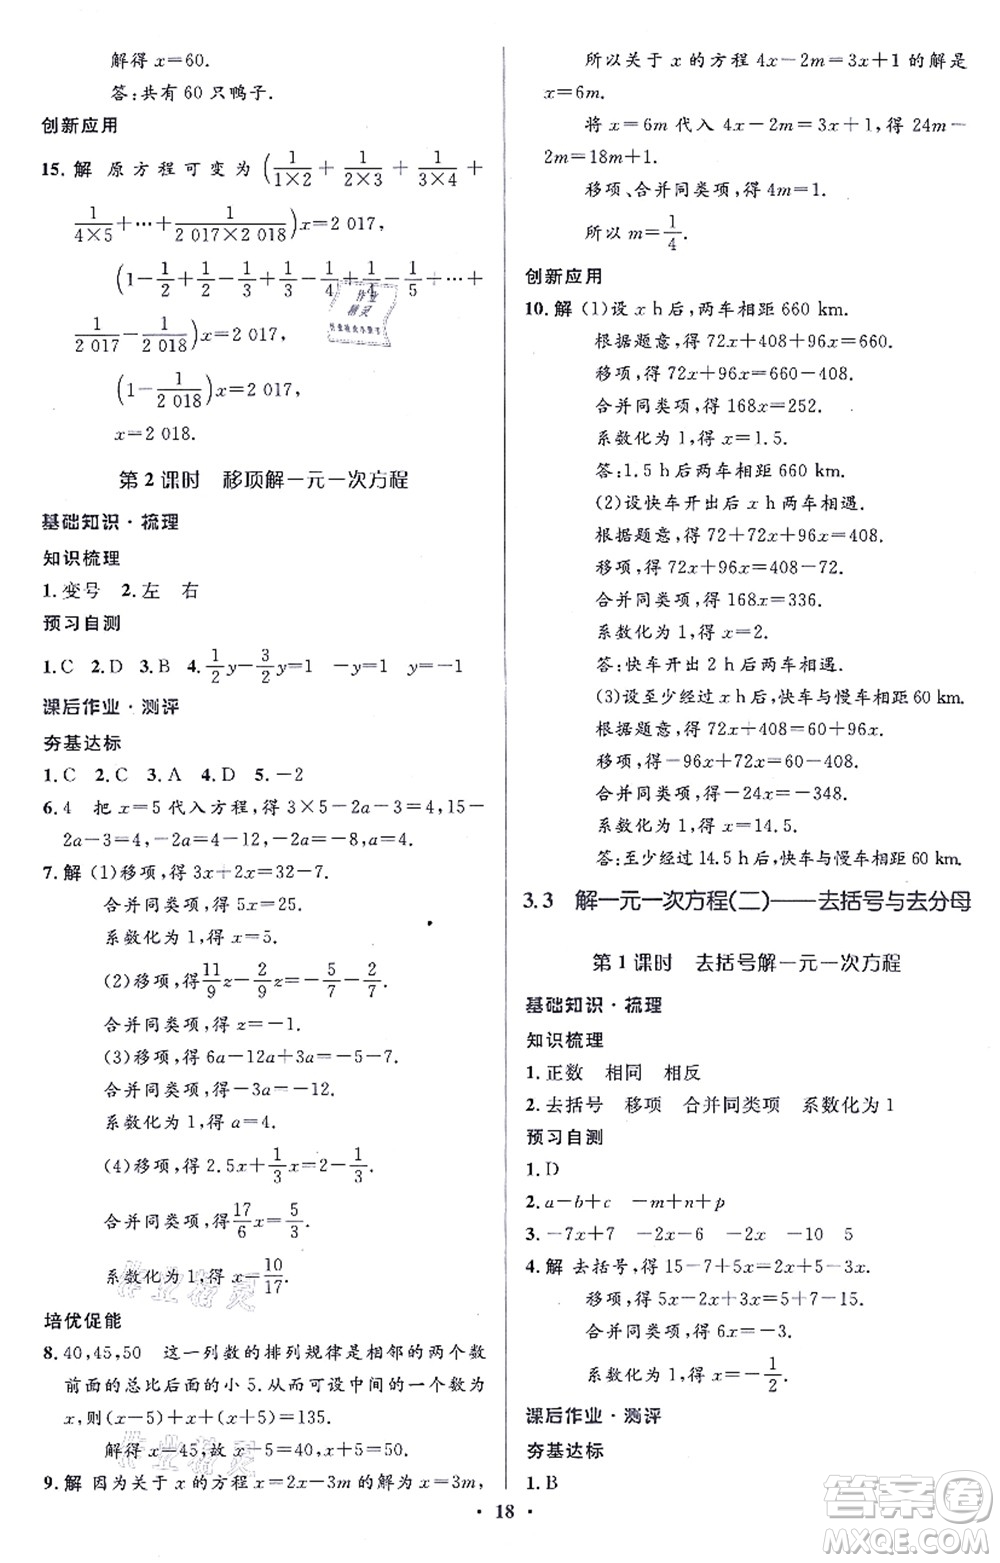 解得 x=60.
答:共有 60 只鸭子.
创新应用
15.解 原方程可变为 (1/(1×2) + 1/(2×3) + 1/(3×4) +
1/(4×5) +…+ 1/(2 017×2 018))x=2 017,
(1-1/2+1/2-1/3+1/3-1/4+1/4-1/5+…+
1/2 017-1/2 018)x=2 017,
(1-1/2 018)x=2 017,
x=2 018.
第 2 课时 移项解一元一次方程
基础知识·梳理
知识梳理
1.变号 2.左 右
预习自测
1.C 2.D 3.B 4.1/2y-3/2y=1 -y=1 y=-1
课后作业·测评
夯基达标
1.C 2.C 3.A 4.D 5.-2
6.4 把 x=5 代入方程,得 3×5-2a-3=4,15-
2a-3=4,-2a=4-15+3,-2a=-8,a=4.
7.解 (1)移项,得 3x+2x=32-7.
合并同类项,得 5x=25.
系数化为 1,得 x=5.
(2)移项,得 11/9z-2/9z=5/7-12/7.
合并同类项,得 z=-1.
(3)移项,得 6a-12a+3a=-5-7.
合并同类项,得-3a=-12.
系数化为 1,得 a=4.
(4)移项,得 2.5x+1/3x=2-1/3.
合并同类项,得 17/6x=5/3.
系数化为 1,得 x=10/17.
培优促能
8.40,45,50 这一列数的排列规律是相邻的两个数
前面的总比后面的小 5.从而可设中间的一个数为
x,则(x-5)+x+(x+5)=135.
解得 x=45,故 x-5=40,x+5=50.
9.解 因为关于 x 的方程 x=2x-3m 的解为 x=3m,
·18·
所以关于 x 的方程 4x-2m=3x+1 的解是
x=6m.
将 x=6m 代入 4x-2m=3x+1,得 24m-
2m=18m+1.
移项、合并同类项,得 4m=1.
所以 m=1/4.
创新应用
10.解 (1)设 x h 后,两车相距 660 km.
根据题意,得 72x+408+96x=660.
移项,得 72x+96x=660-408.
合并同类项,得 168x=252.
系数化为 1,得 x=1.5.
答:1.5 h 后两车相距 660 km.
(2)设快车开出后 x h 两车相遇.
根据题意,得 72+72x+96x=408.
移项,得 72x+96x=408-72.
合并同类项,得 168x=336.
系数化为 1,得 x=2.
答:快车开出 2 h 后两车相遇.
(3)设至少经过 x h 后,快车与慢车相距 60 km.
根据题意,得 72x+408=96x+60.
移项,得-96x+72x=60-408.
合并同类项,得-24x=-348.
系数化为 1,得 x=14.5.
答:至少经过 14.5 h 后,快车与慢车相距 60 km.
3.3 解一元一次方程(二)——去括号与去分母
第 1 课时 去括号解一元一次方程
基础知识·梳理
知识梳理
1.正数 相同 相反
2.去括号 移项 合并同类项 系数化为 1
预习自测
1.D
2.a-b+c -m+n+p
3.-7x+7 -6x -2x -2x -10 5
4.解 去括号,得 15-7+5x=2x+5-3x.
移项,得 5x-2x+3x=5+7-15.
合并同类项,得 6x=-3.
系数化为 1,得 x=-1/2.
课后作业·测评
夯基达标
1.B
作业精灵
作业精灵
作业精灵
答案圈
MXQE.COM